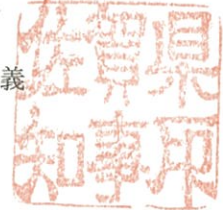 義
佐賀県
知事印